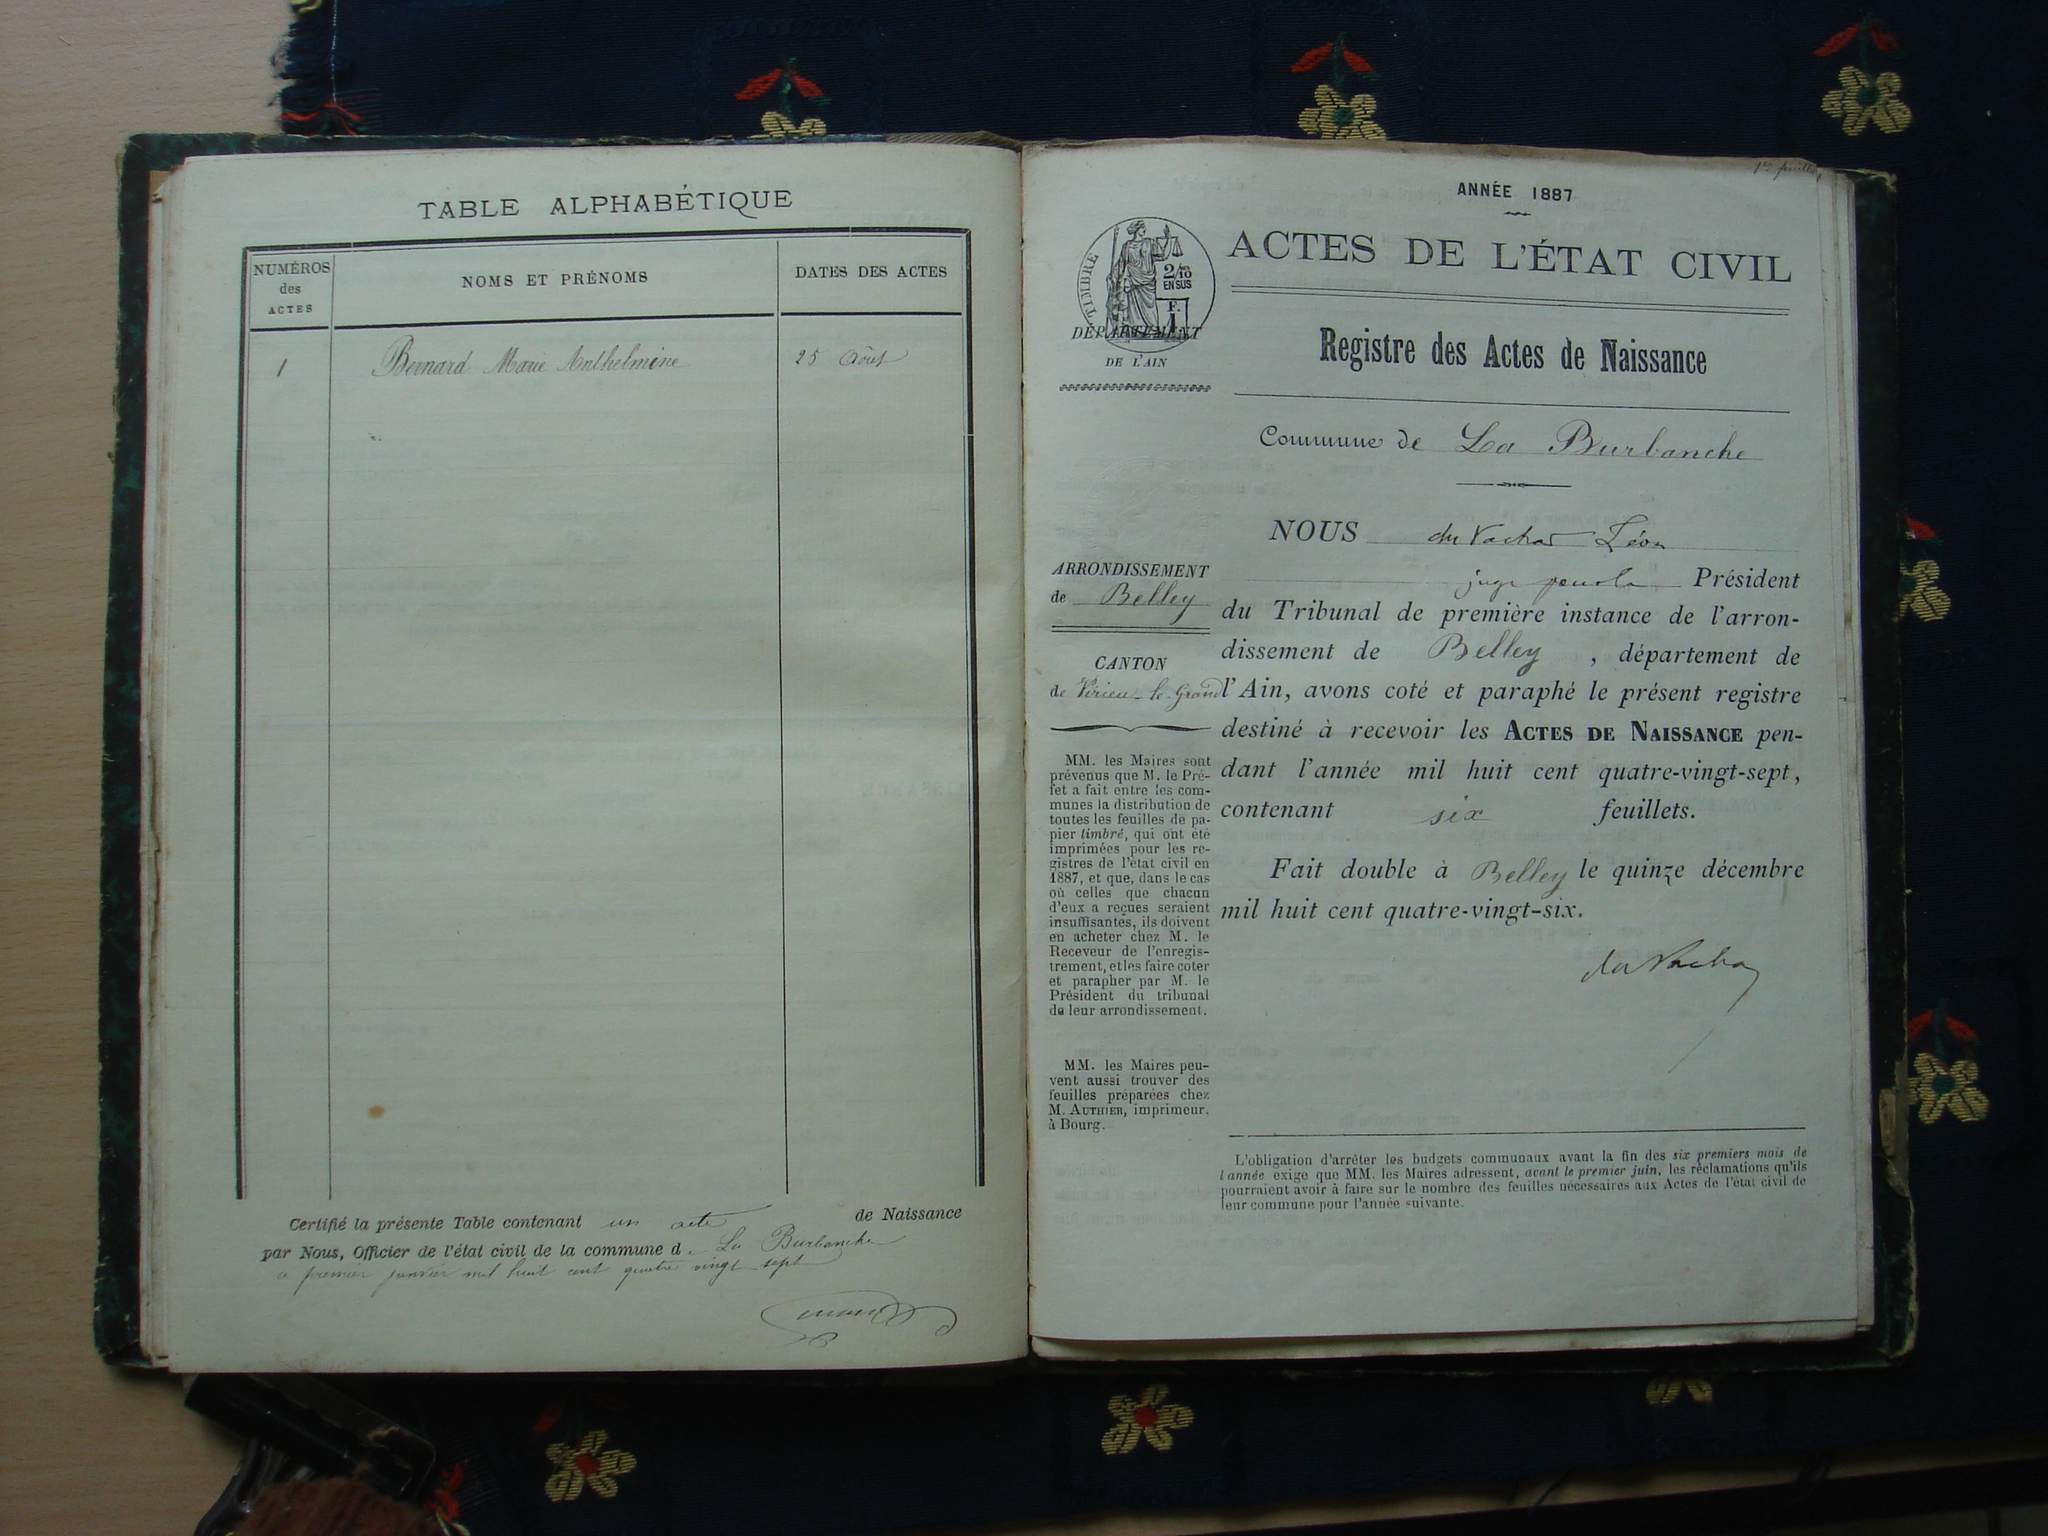 TABLE ALPHABÉTIQUE
NUMÉROS
des
ACTES
NOMS ET PRÉNOMS
DATES DES ACTES
1 Bernard Marie Anthelmine 25 Août
Certifié la présente Table contenant un acte de Naissance
par Nous, Officier de l'état civil de la commune d e La Burbanche
premier janvier mil huit cent quatre vingt sept
1er feuillet
ANNÉE 1887
TIMBRE
2/10
EN SUS
F.
1
ACTES DE L'ÉTAT CIVIL
DÉPARTEMENT
DE L'AIN
Registre des Actes de Naissance
Commune de La Burbanche
ARRONDISSEMENT
de Belley
CANTON
de Virieu-le-Grand
MM. les Maires sont
prévenus que M. le Pré-
fet a fait entre les com-
munes la distribution de
toutes les feuilles de pa-
pier timbré, qui ont été
imprimées pour les re-
gistres de l'état civil en
1887, et que, dans le cas
où celles que chacun
d'eux a reçues seraient
insuffisantes, ils doivent
en acheter chez M. le
Receveur de l'enregis-
trement, et les faire coter
et parapher par M. le
Président du tribunal
de leur arrondissement.
MM. les Maires peu-
vent aussi trouver des
feuilles préparées chez
M. AUTHIER, imprimeur,
à Bourg.
NOUS Léon
juge Président
du Tribunal de première instance de l'arron-
dissement de Belley, département de
l'Ain, avons coté et paraphé le présent registre
destiné à recevoir les ACTES DE NAISSANCE pen-
dant l'année mil huit cent quatre-vingt-sept,
contenant six feuillets.
Fait double à Belley le quinze décembre
mil huit cent quatre-vingt-six.
L'obligation d'arrêter les budgets communaux avant la fin des six premiers mois de
l'année exige que MM. les Maires adressent, avant le premier juin, les réclamations qu'ils
pourraient avoir à faire sur le nombre des feuilles nécessaires aux Actes de l'état civil de
leur commune pour l'année suivante.